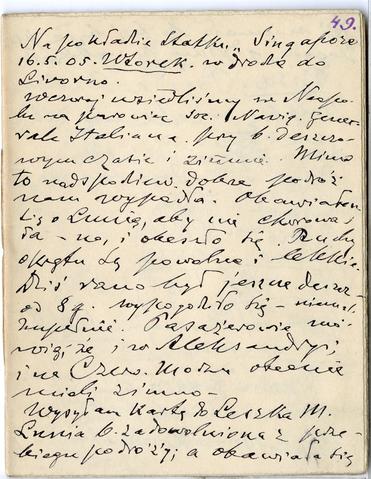 49.
Na pokładzie statku „Singapore
16.5.05. Wtorek. w drodze do
Livorno.
Wczoraj wsiedliśmy w Neapo-
lu na parowiec Soc. Navig. Gene-
rale Italiana, przy b. deszczo-
wym czasie i zimnie. Mimo
to nadspodziew. dobrze podróż
nam wypadła. Obawiałem
się o Lunię, aby nie chorowa-
ła - no, i obeszło się. Ruchy
okrętu są powolne i lekkie.
Dziś rano był jeszcze deszcz -
od 8 g. wypogodziło się - niemal
zupełnie. Pasażerowie mó-
wią, że i w Aleksandryi,
i na Czerw. Morzu obecnie
mieli zimno -
Wysyłam kartę do Leszka M.
Lunia b. zadowolniona z prze-
biegu podróży; a obawiała się